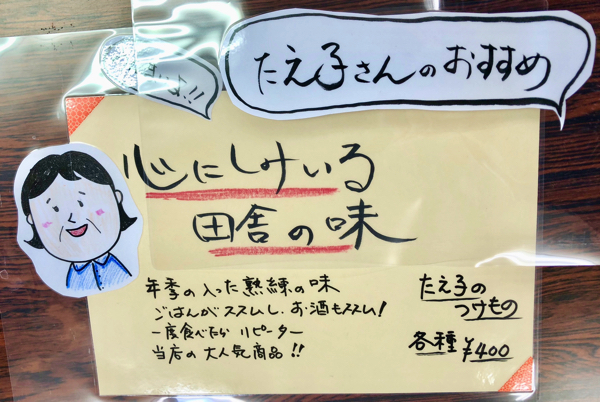 たえ子さんのおすすめ
心にしみいる
田舎の味
年季の入った熟練の味
ごはんがススムし、お酒もススム!
一度食べたら リピーター
当店の大人気商品!!
たえ子の
つけもの
各種 ¥400